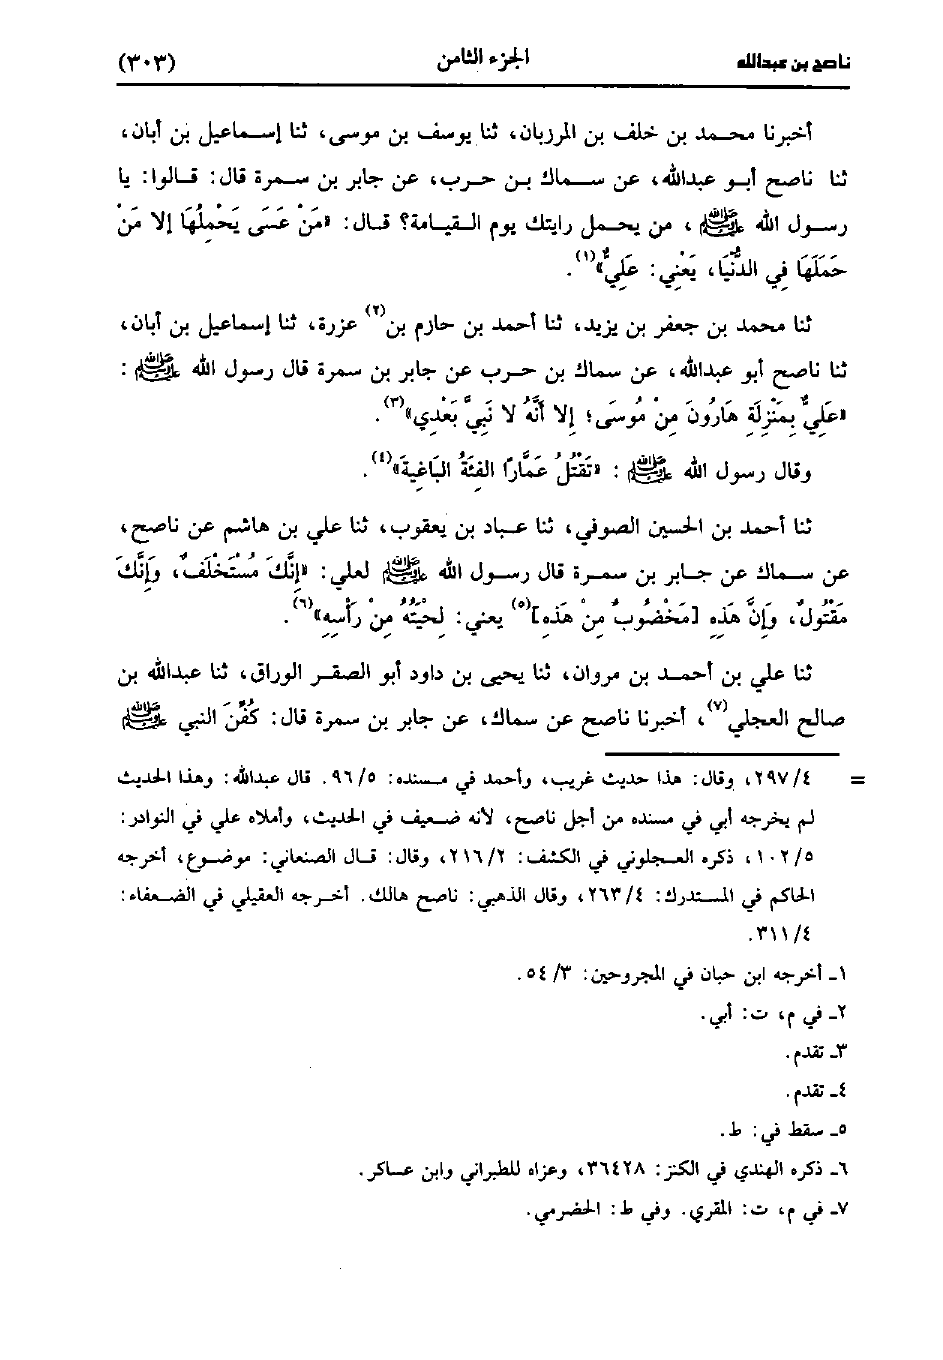 ناصح بن عبدالله الجزء الثامن (٣٠٣)
أخبرنا محمد بن خلف بن المرزبان، ثنا يوسف بن موسى، ثنا إسماعيل بن أبان،
ثنا ناصح أبو عبدالله، عن سماك بن حرب، عن جابر بن سمرة قال: قالوا: يا
رسول الله ﷺ، من يحمل رايتك يوم القيامة؟ قال: «مَنْ عَسَى يَحْمِلُهَا إلا مَنْ
حَمَلَهَا فِي الدُّنْيَا، يَعْنِي: عَلِيٌّ»(١).
ثنا محمد بن جعفر بن يزيد، ثنا أحمد بن حازم بن(٢) عزرة، ثنا إسماعيل بن أبان،
ثنا ناصح أبو عبدالله، عن سماك بن حرب عن جابر بن سمرة قال رسول الله ﷺ:
«عَلِيٌّ بِمَنْزِلَةِ هَارُونَ مِنْ مُوسَى؛ إلا أنَّهُ لا نَبِيَّ بَعْدِي»(٣).
وقال رسول الله ﷺ: «تَقْتُلُ عَمَّارًا الفِئَةُ البَاغِيَةَ»(٤).
ثنا أحمد بن الحسين الصوفي، ثنا عباد بن يعقوب، ثنا علي بن هاشم عن ناصح،
عن سماك عن جابر بن سمرة قال رسول الله ﷺ لعلي: «إنَّكَ مُسْتَخْلَفٌ، وَإنَّكَ
مَقْتُولٌ، وَإنَّ هَذِهِ [مَخْضُوبٌ مِنْ هَذِهِ](٥) يعني: لِحْيَتُهُ مِنْ رَأسِهِ»(٦).
ثنا علي بن أحمد بن مروان، ثنا يحيى بن داود أبو الصقر الوراق، ثنا عبدالله بن
صالح العجلي(٧)، أخبرنا ناصح عن سماك، عن جابر بن سمرة قال: كُفِّنَ النبي ﷺ
= ٢٩٧/٤، وقال: هذا حديث غريب، وأحمد في مسنده: ٩٦/٥. قال عبدالله: وهذا الحديث
لم يخرجه أبي في مسنده من أجل ناصح، لأنه ضعيف في الحديث، وأملاه علي في النوادر:
١٠٢/٥، ذكره العجلوني في الكشف: ٢١٦/٢، وقال: قال الصنعاني: موضوع، أخرجه
الحاكم في المستدرك: ٢٦٣/٤، وقال الذهبي: ناصح هالك. أخرجه العقيلي في الضعفاء:
٣١١/٤.
١ـ أخرجه ابن حبان في المجروحين: ٥٤/٣.
٢ـ في م، ت: أبي.
٣ـ تقدم.
٤ـ تقدم.
٥ـ سقط في: ط.
٦ـ ذكره الهندي في الكنز: ٣٦٤٢٨، وعزاه للطبراني وابن عساكر.
٧ـ في م، ت: المقري. وفي ط: الحضرمي.